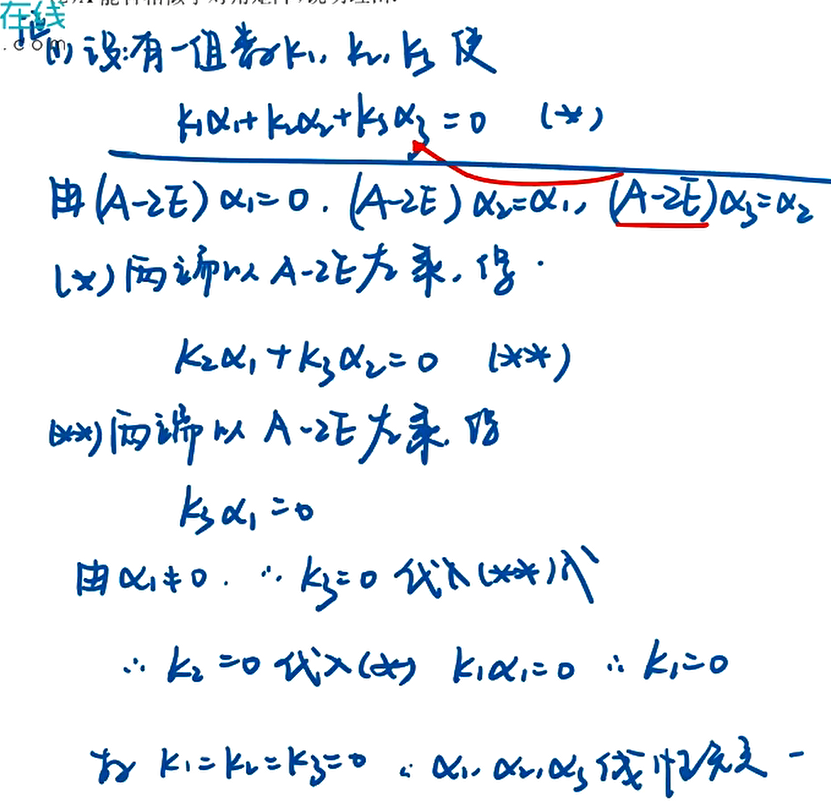 在线
.com
证(1) 设有一组数 k₁, k₂, k₃ 使
k₁α₁+k₂α₂+k₃α₃=0 (*)
由(A-2E)α₁=0. (A-2E)α₂=α₁, (A-2E)α₃=α₂
(*)两端以A-2E左乘,得.
k₂α₁+k₃α₂=0 (**)
(**)两端以 A-2E左乘.得
k₃α₁=0
由α₁≠0. ∴ k₃=0 代入(**)式
∴ k₂=0 代入(*) k₁α₁=0 ∴ k₁=0
故 k₁=k₂=k₃=0 ∴ α₁,α₂,α₃线性无关